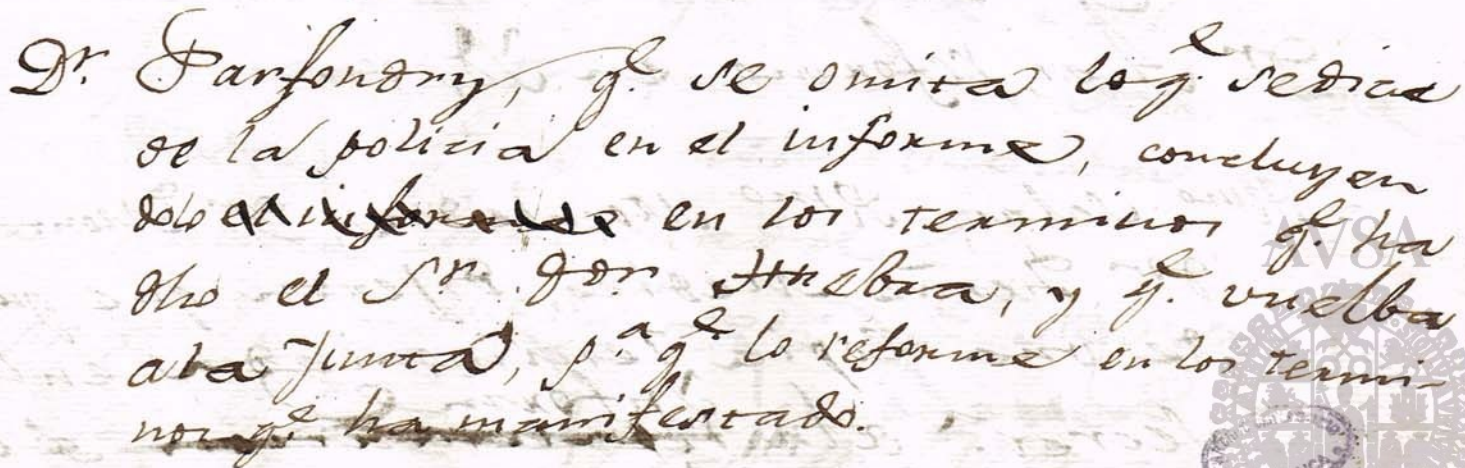 Dr. Parfondry, qe. se omita loqe. sedice
de la policia en el informe, concluyen
dolo en los terminos qe. ha
dho el Sr. Dor. Huebra, y qe. vuelba
ala Junta, pa. qe. lo reforme en los termi-
nos qe. ha manifestado.
AVSA